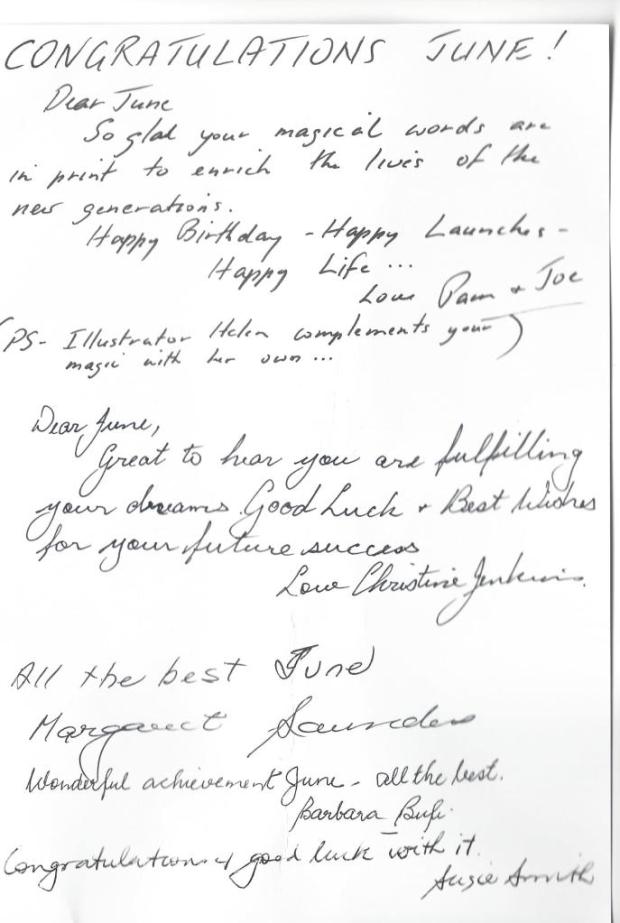 CONGRATULATIONS JUNE!
Dear June
So glad your magical words are
in print to enrich the lives of the
new generations.
Happy Birthday - Happy Launches -
Happy Life ...
Love Pam + Joe
(PS- Illustrator Helen complements your)
magic with her own ...
Dear June,
Great to hear you are fulfilling
your dreams. Good Luck + Best Wishes
for your future success
Love Christine Jenkins.
All the best June
Margaret Saunders
Wonderful achievement June - all the best.
Barbara
Congratulations & good luck with it.
Susie Smith